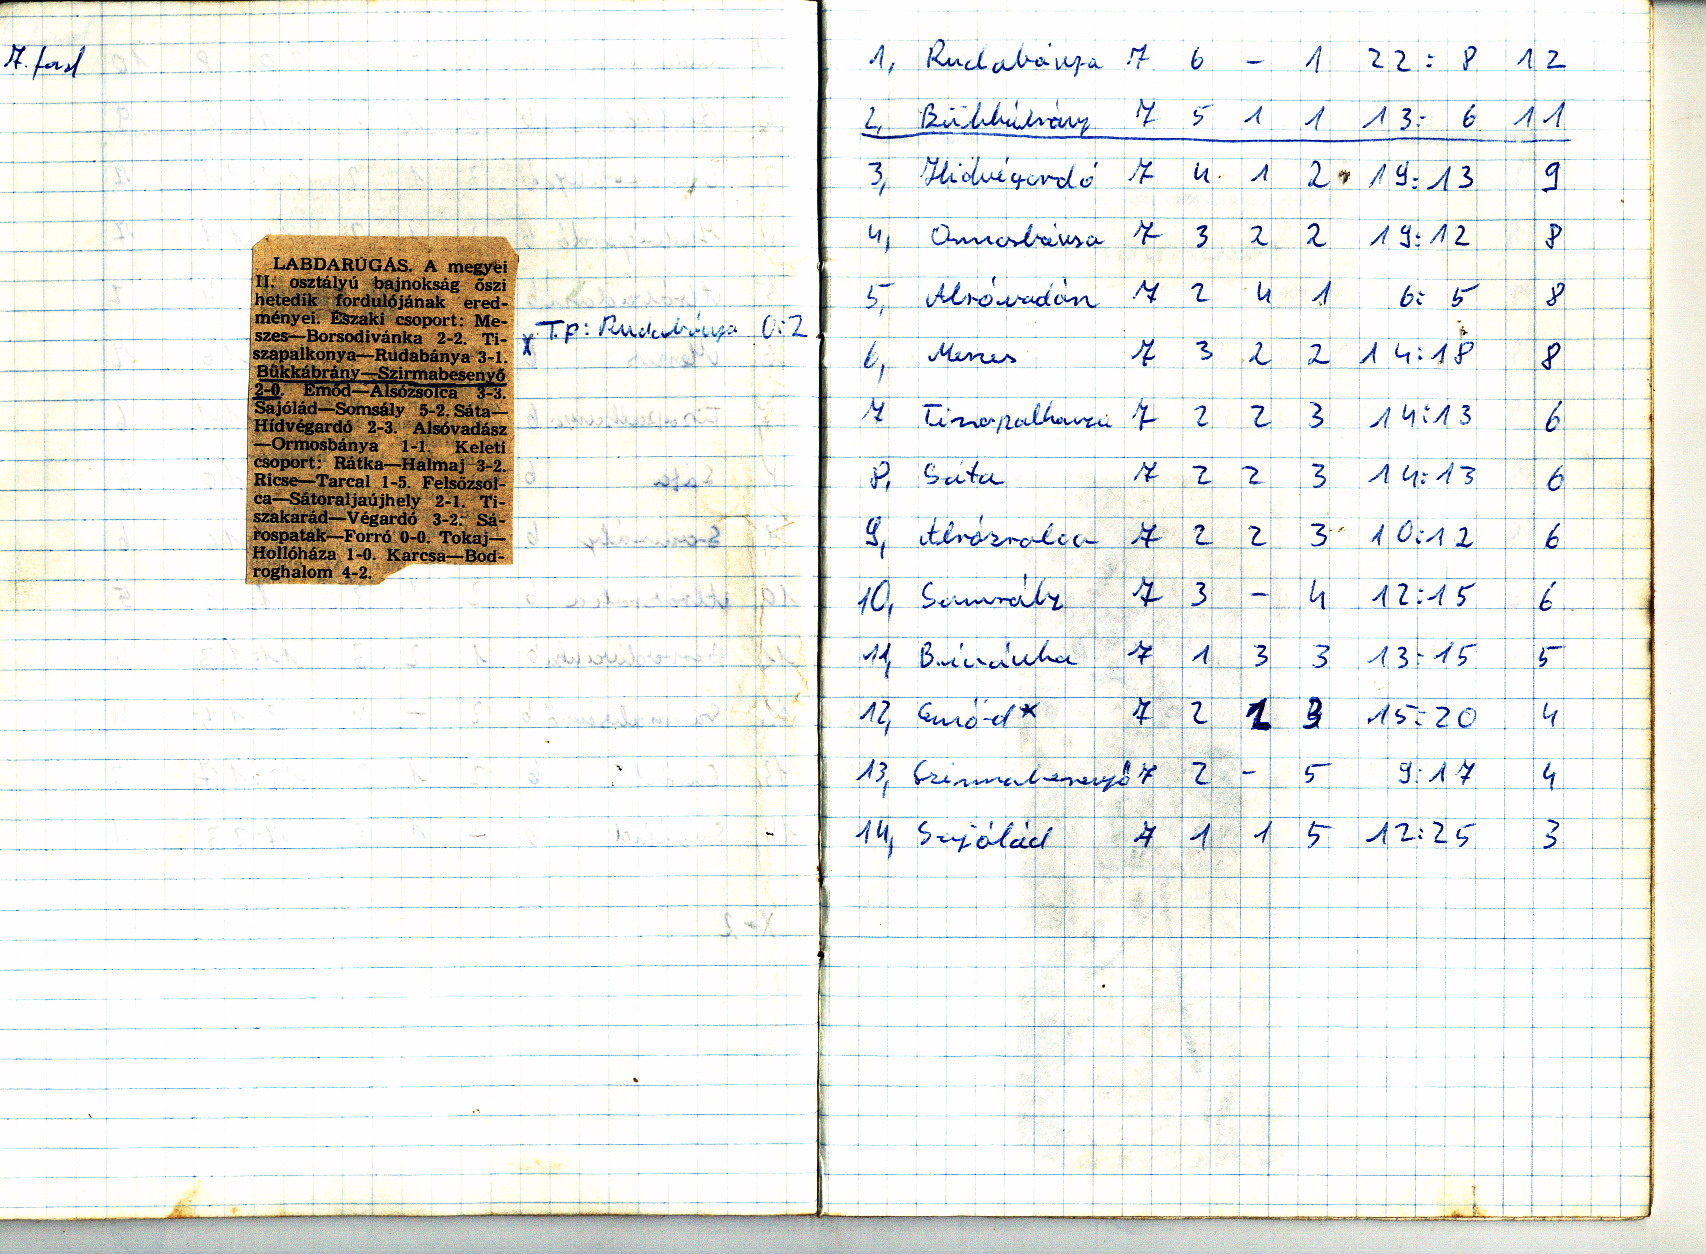 7. ford
LABDARÚGÁS. A megyei
II. osztályú bajnokság őszi
hetedik fordulójának ered-
ményei. Északi csoport: Me-
szes—Borsodivánka 2-2. Ti-
szapalkonya—Rudabánya 3-1.
Bükkábrány—Szirmabesenyő
2-0. Emőd—Alsózsolca 3-3.
Sajólád—Somsály 5-2. Sáta—
Hidvégardó 2-3. Alsóvadász
—Ormosbánya 1-1. Keleti
csoport: Rátka—Halmaj 3-2.
Ricse—Tarcal 1-5. Felsőzsol-
ca—Sátoraljaújhely 2-1. Ti-
szakarád—Végardó 3-2. Sá-
rospatak—Forró 0-0. Tokaj—
Hollóháza 1-0. Karcsa—Bod-
roghalom 4-2.
x T.p: Rudabánya 0:2
1, Rudabánya 7 6 - 1 22: 8 12
2, Bükkábrány 7 5 1 1 13: 6 11
3, Hidvégardó 7 4 1 2 19:13 9
4, Ormosbánya 7 3 2 2 19:12 8
5, Alsóvadász 7 2 4 1 6: 5 8
6, Meszes 7 3 2 2 14:18 8
7 Tiszapalkonya 7 2 2 3 14:13 6
8, Sáta 7 2 2 3 14:13 6
9, Alsózsolca 7 2 2 3 10:12 6
10, Somsály 7 3 - 4 12:15 6
11, B.ivánka 7 1 3 3 13:15 5
12, Emőd* 7 2 1 3 15:20 4
13, Szirmabesenyő 7 2 - 5 9:17 4
14, Sajólád 7 1 1 5 12:25 3